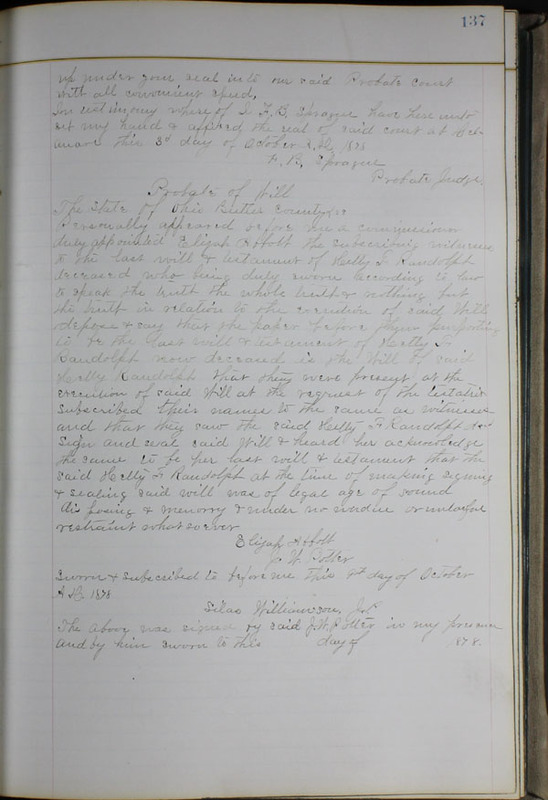 137
under your seal into our said Probate Court
with all convenient speed,
In testimony whereof I F. B. Sprague have here unto
set my hand & affixed the seal of said court at
this 3d day of October A.D. 1878
F. B. Sprague
Probate Judge.
Probate of Will
The State of Ohio Butler County ss
Personally appeared before me a commissioner
duly appointed Elijah Abbott the subscribing witnesses
to the last will & testament of Hetty F Randolph
deceased who being duly sworn according to law
to speak the truth the whole truth & nothing but
the truth in relation to the execution of said Will
depose & say that the paper before them purporting
to be the last will & testament of Hetty F
Randolph now deceased is the Will of said
Hetty Randolph that they were present at the
execution of said Will at the request of the testatrix
Subscribed their names to the same as witnesses
and that they saw the said Hetty F Randolph
Sign and seal said Will & heard her acknowledge
the same to be her last will & testament that the
said Hetty F Randolph at the time of making signing
& sealing said will was of legal age of sound
disposing & memory & under no undue or unlawful
restraint whatsoever
Elijah Abbott
J. W. Potter
Sworn & subscribed to before me this day of October
A.D. 1878
Silas Williamson, J.P.
The above was signed by said J. W. Potter in my presence
and by him sworn to this day of 1878.